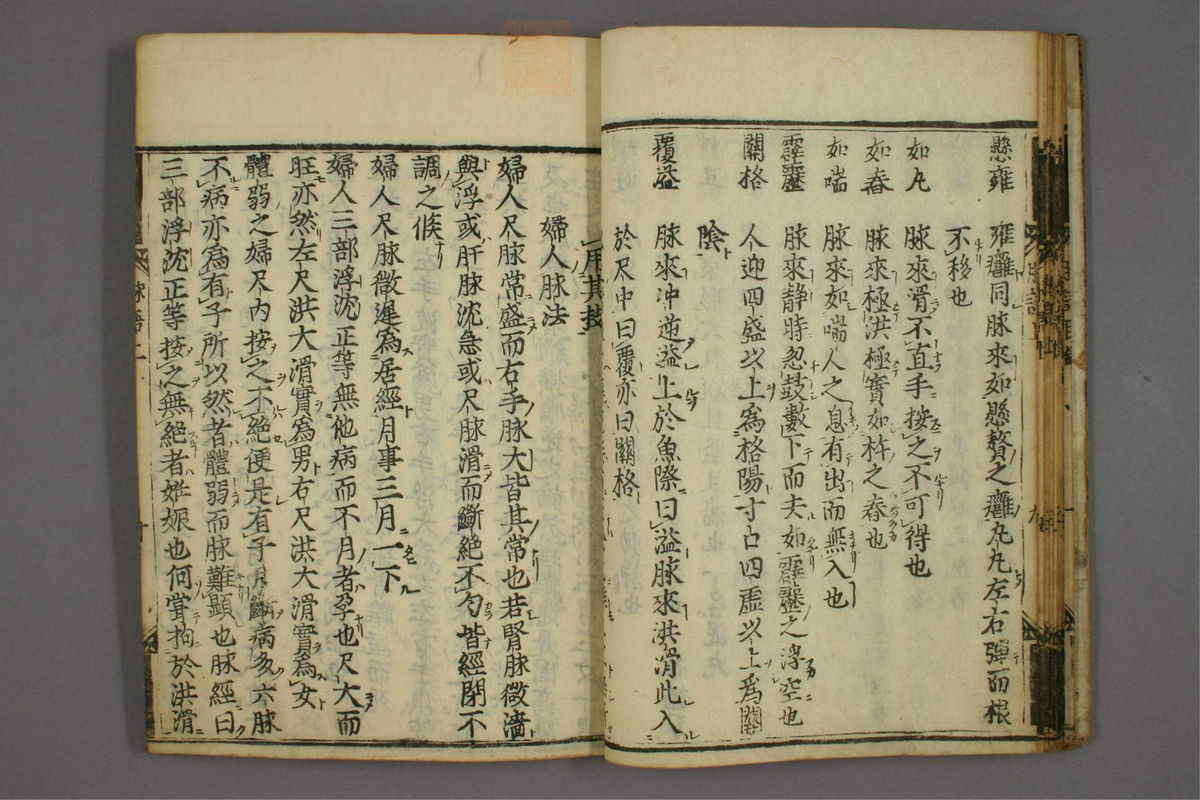 懸雍 雍癰同脉來如懸贅之癰丸丸左右彈而根
不移也
如丸 脉來滑不直手按之不可得也
如舂 脉來極洪極實如杵之舂也
如喘 脉來如喘人之息有出而無入也
霹靂 脉來静時忽鼓數下而去如霹靂之浮空也
關格 人迎四盛以上爲格陽寸口四虛以上爲關
陰
覆溢 脉來沖逆溢上於魚際曰溢脉來洪滑此入
於尺中曰覆亦曰關格
婦人脉法
婦人尺脉常盛而右手脉大皆其常也若腎脉微濇
與浮或肝脉沈急或尺脉滑而斷絶不匀皆經閉不
調之候
婦人尺脉微遲爲居經月事三月一下
婦人三部浮沈正等無他病而不月者孕也尺大而
旺亦然左尺洪大滑實爲男右尺洪大滑實爲女
體弱之婦尺内按之不絶便是有子月斷病多六脉
不病亦爲有子所以然者體弱而脉難顯也脉經曰
三部浮沈正等按之無絶者姙娠也何嘗拘於洪滑